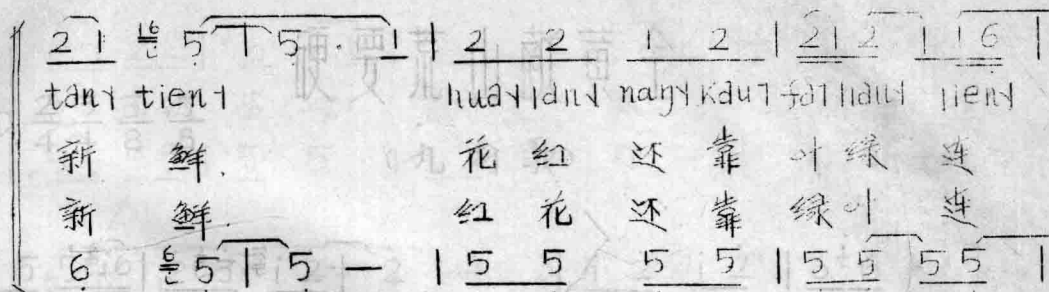 2 1 16 5 | 5 · 1 | 2 2 1 2 | 21 2 1 1 6 |
tan˧ tien˧ hua˧ lan˧ naŋ˧ kau˥ fa˥ hau˧ lien˧
新 鲜. 花 红 还 靠 叶 绿 连
新 鲜. 红 花 还 靠 绿 叶 连
6 6 5 | 5 — | 5 5 5 5 | 5 5 5 5 |